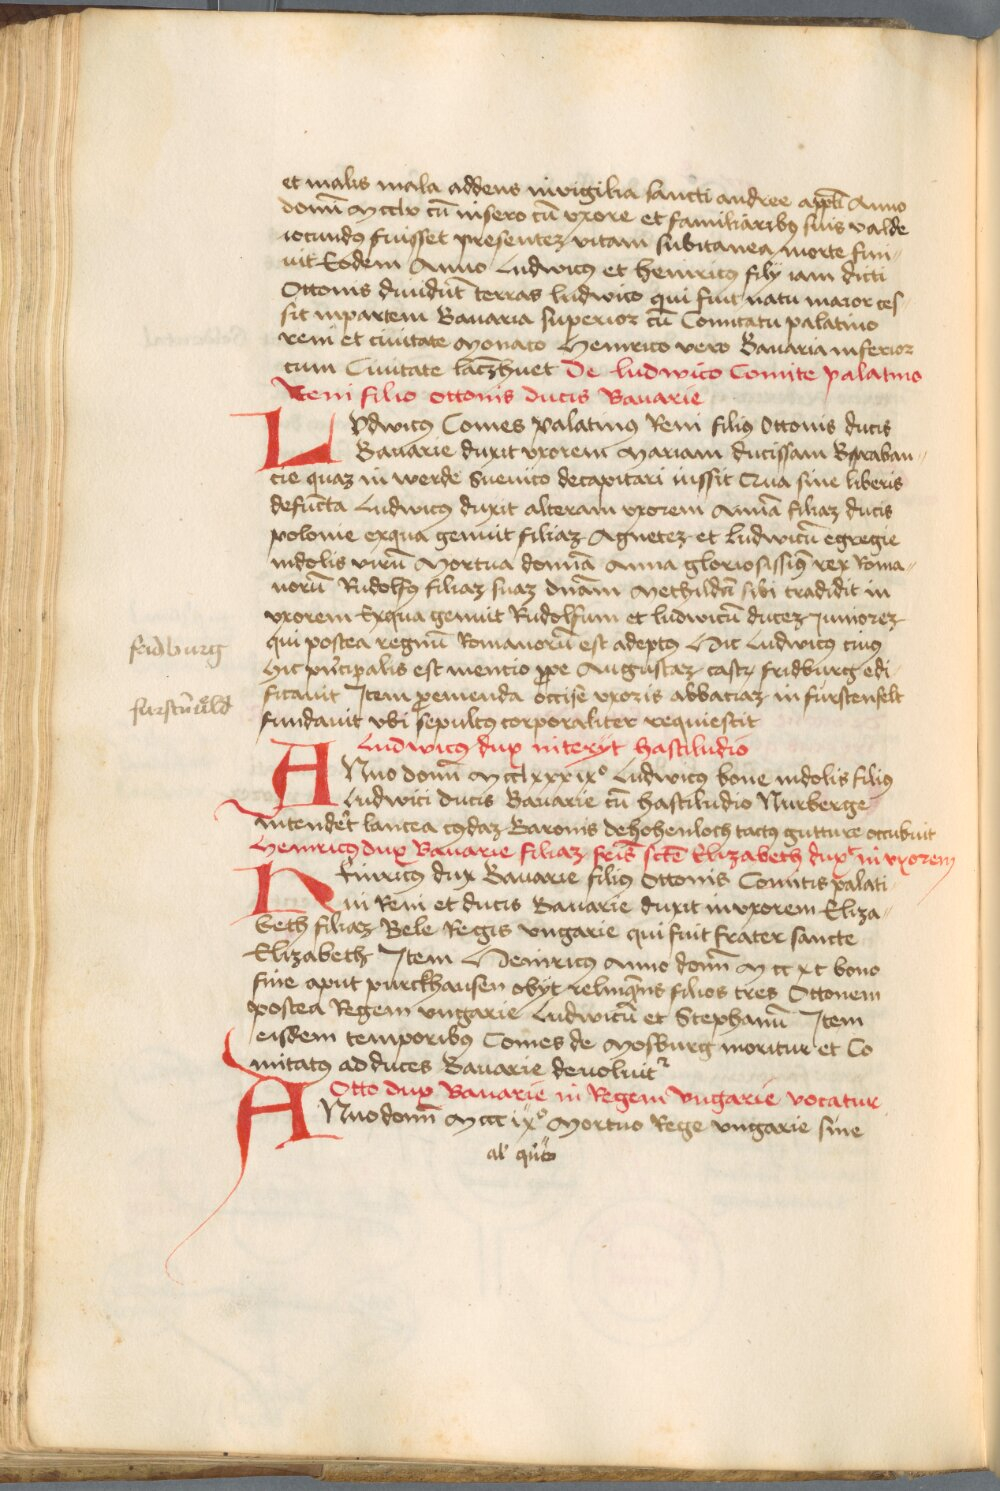 et malis mala addens in vigilia sancti andree appli Anno
domī Mcclv cū in sero cū vxore et familiaribꝰ suis valde
iocundꝰ fuisset presentez vitam subitanea morte fini-
uit Eodem Anno Ludwicꝰ et heinricꝰ filij iam dicti
Ottonis diuidūt terras ludwico qui fuit natu maior ces-
sit in partem Bauaria superior cū Comitatu palatino
reni et ciuitate Monaco Heinrico vero Bauaria inferior
cum Ciuitate laczhuet De ludwico Comite palatino
Reni filio ottonis ducis Bauarie
LVdwicꝰ Comes palatinꝰ Reni filiꝰ Ottonis ducis
Bauarie duxit vxorem Mariam ducissam Braban-
cie quaz in werde Sueuico decapitari iussit Qua sine liberis
defuncta Ludwicꝰ duxit alteram vxorem Annā filiaz ducis
polonie ex qua genuit filiaz Agnetez et Ludwicū egregie
indolis virū Mortua domīa Anna gloriosissimꝰ rex Roma-
norū Rudolfꝰ filiaz suaz dnām Methildā sibi tradidit in
vxorem Ex qua genuit Rudolfum et ludwicū ducez Iuniorez
qui postea regnū Romanorū est adeptꝰ Hic Ludwicꝰ cuiꝰ
hic prīcipalis est mentio ꝓpe Augustaz castꝝ fridburg edi-
ficauit Item ꝓ emenda occise vxoris abbaciaz in furstenfelt
fundauit vbi sepultꝰ corporaliter requiescit
fridburg
furstn̄uēld
Ludwicꝰ dux interijt hastiludio
ANno domī Mcclxxxixº Ludwicꝰ bone indolis filiꝰ
Ludwici ducis Bauarie cū hastiludio Nurberge
intendet lancea cꝰdaz Baronis de hohenloch tactꝰ gutture occubuit
Heinricꝰ dux Bauarie filiaz frīs scte Elizabeth duxt in vxorem
HEinricꝰ dux Bauarie filiꝰ Ottonis Comitis palati-
ni Reni et ducis Bauarie duxit in vxorem Eliza-
beth filiaz Bele Regis vngarie qui fuit frater sancte
Elizabeth Item Heinricꝰ Anno domī Mccxc bono
fine aput purckhausen obijt relinqēns filios tres Ottonem
postea Regem vngarie Ludwicū et Stephanū Item
eisdem temporibꝰ Comes de Mosburg moritur et Co
mitatꝰ ad duces Bauarie deuoluitr
Otto dux Bauarie in Regem vngarie vocatur
ANno domī Mcccixº Mortuo Rege vngarie sine